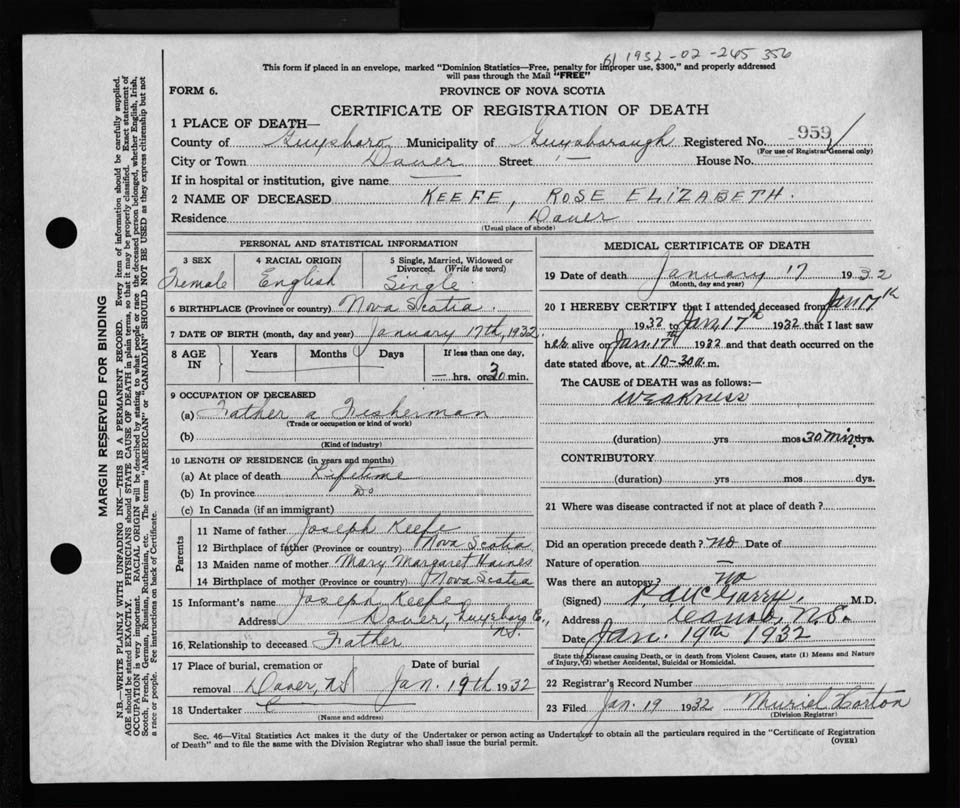 B 1932-02-265 356
This form if placed in an envelope, marked "Dominion Statistics—Free, penalty for improper use, $300," and properly addressed
will pass through the Mail "FREE"
FORM 6.
PROVINCE OF NOVA SCOTIA
CERTIFICATE OF REGISTRATION OF DEATH
1 PLACE OF DEATH—
County of Guysboro Municipality of Guysborough Registered No. 959
(For use of Registrar General only)
City or Town Dover Street — House No.
If in hospital or institution, give name —
2 NAME OF DECEASED KEEFE, ROSE ELIZABETH.
Residence Dover
(Usual place of abode)
PERSONAL AND STATISTICAL INFORMATION
3 SEX 4 RACIAL ORIGIN 5 Single, Married, Widowed or
Divorced. (Write the word)
Female English Single
6 BIRTHPLACE (Province or country) Nova Scotia.
7 DATE OF BIRTH (month, day and year) January 17th, 1932.
8 AGE IN Years Months Days If less than one day,
— hrs. or 30 min.
9 OCCUPATION OF DECEASED
(a) Father a Fisherman
(Trade or occupation or kind of work)
(b)
(Kind of industry)
10 LENGTH OF RESIDENCE (in years and months)
(a) At place of death Lifetime
(b) In province Do
(c) In Canada (if an immigrant)
Parents
11 Name of father Joseph Keefe
12 Birthplace of father (Province or country) Nova Scotia
13 Maiden name of mother Mary Margaret Haines
14 Birthplace of mother (Province or country) Nova Scotia
15 Informant's name Joseph Keefe
Address Dover, Guysboro Co., N.S.
16 Relationship to deceased Father
17 Place of burial, cremation or Date of burial
removal Dover, NS Jan. 19th 1932
18 Undertaker —
(Name and address)
MEDICAL CERTIFICATE OF DEATH
19 Date of death January 17 1932
(Month, day and year)
20 I HEREBY CERTIFY that I attended deceased from Jan 17th
1932 to Jan. 17th 1932 that I last saw
her alive on Jan. 17th 1932 and that death occurred on the
date stated above, at 10-30 a. m.
The CAUSE of DEATH was as follows:—
Weakness
(duration) yrs mos 30 min dys.
CONTRIBUTORY
(duration) yrs. mos. dys.
21 Where was disease contracted if not at place of death?
Did an operation precede death? no Date of
Nature of operation —
Was there an autopsy? no
(Signed) McGarry, M.D.
Address Canso, N.S.
Date Jan. 19th 1932
State the Disease causing Death, or in death from Violent Causes, state (1) Means and Nature
of Injury, (2) whether Accidental, Suicidal or Homicidal.
22 Registrar's Record Number
23 Filed Jan. 19 1932 Muriel Horton
(Division Registrar)
Sec. 46—Vital Statistics Act makes it the duty of the Undertaker or person acting as Undertaker to obtain all the particulars required in the "Certificate of Registration
of Death" and to file the same with the Division Registrar who shall issue the burial permit.
(OVER)
MARGIN RESERVED FOR BINDING
N.B.—WRITE PLAINLY WITH UNFADING INK—THIS IS A PERMANENT RECORD. Every item of information should be carefully supplied.
AGE should be stated EXACTLY. PHYSICIANS should STATE CAUSE OF DEATH in plain terms, so that it may be properly classified. Exact statement of
OCCUPATION is very important. RACIAL ORIGIN will be described by stating to what people or race the deceased person belonged, whether English, Irish,
Scotch, French, German, Russian, Ruthenian, etc. The terms "AMERICAN" or "CANADIAN" SHOULD NOT BE USED as they express citizenship but not
a race or people. See instructions on back of Certificate.